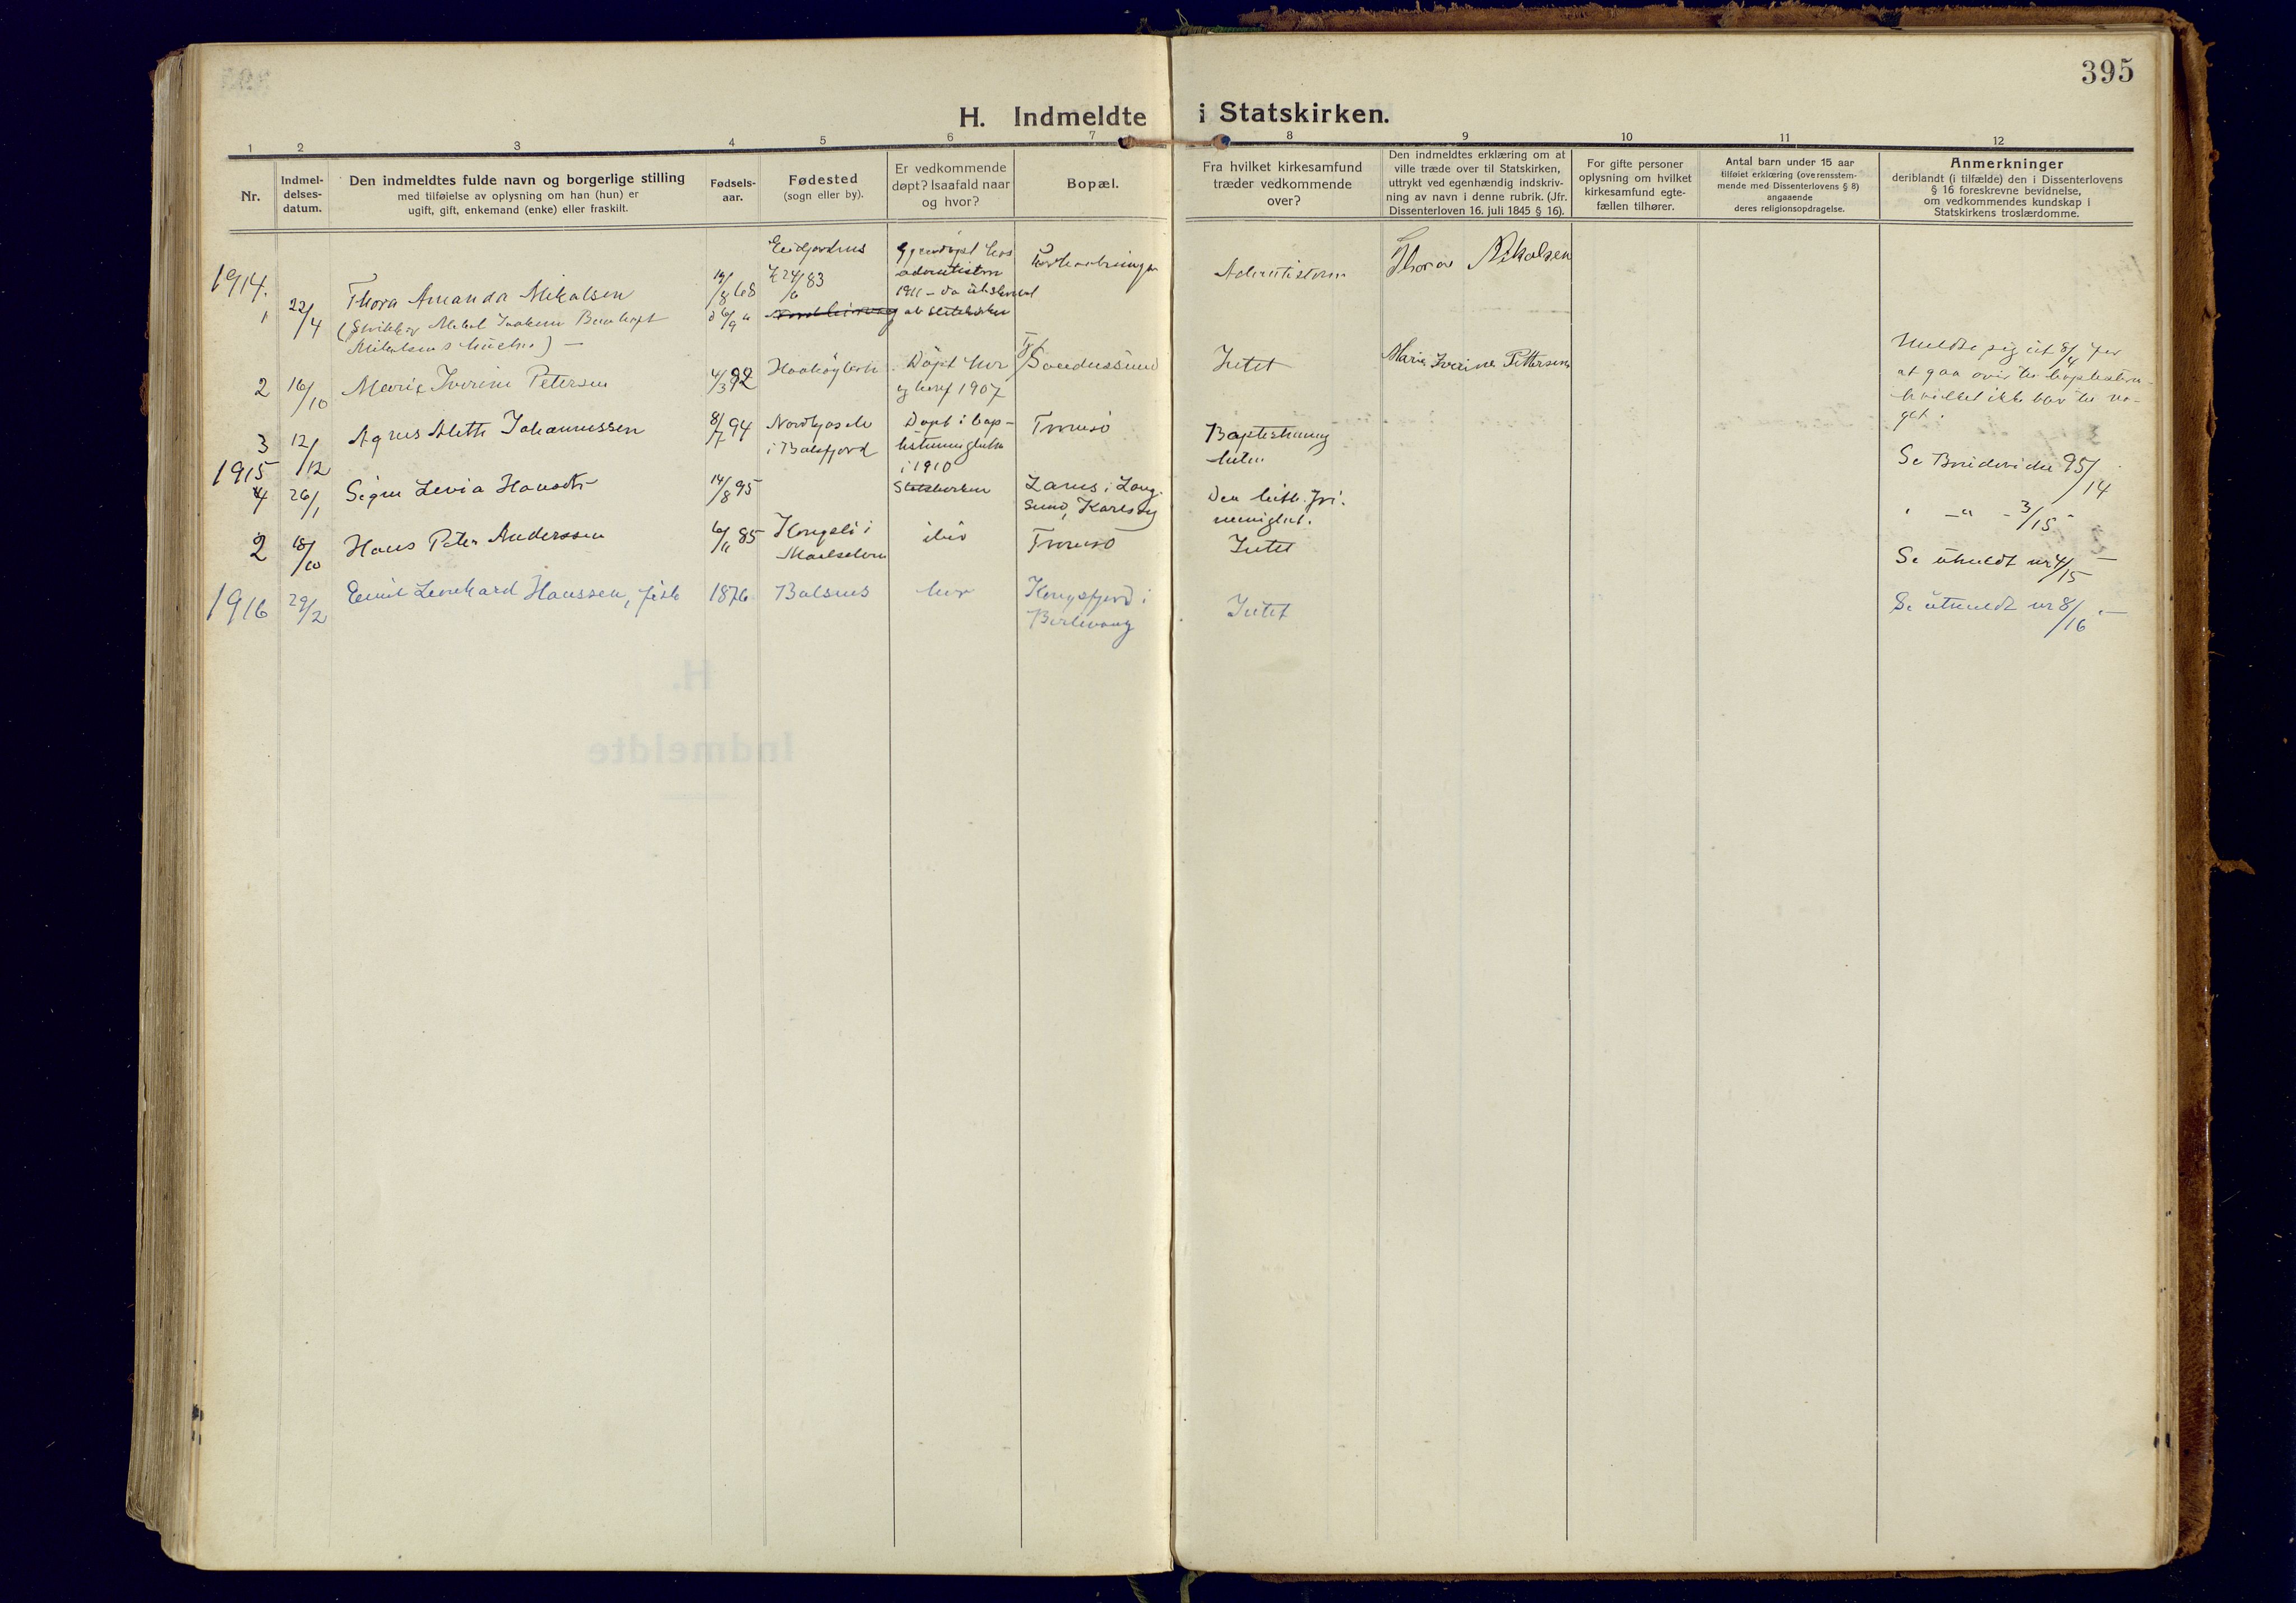 395
H. Indmeldte i Statskirken.
1 2 3 4 5 6 7 8 9 10 11 12
Nr.
Indmel-
delses-
datum.
Den indmeldtes fulde navn og borgerlige stilling
med tilføielse av oplysning om han (hun) er
ugift, gift, enkemand (enke) eller fraskilt.
Fødsels-
aar.
Fødested
(sogn eller by).
Er vedkommende
døpt? Isaafald naar
og hvor?
Bopæl.
Fra hvilket kirkesamfund
træder vedkommende
over?
Den indmeldtes erklæring om at
ville træde over til Statskirken,
uttrykt ved egenhændig indskriv-
ning av navn i denne rubrik. (Jfr.
Dissenterloven 16. juli 1845 § 16).
For gifte personer
oplysning om hvilket
kirkesamfund egte-
fællen tilhører.
Antal barn under 15 aar
tilføiet erklæring (overensstem-
mende med Dissenterlovens § 8)
angaaende
deres religionsopdragelse.
Anmerkninger
deriblandt (i tilfælde) den i Dissenterlovens
§ 16 foreskrevne bevidnelse,
om vedkommendes kundskap i
Statskirkens troslærdomme.
1914.
1
22/4
Thora Amanda Mikalsen
Mikalsens
adventisten
1911 – da utskrevet
Adventisterne
Thora Mikalsen
2
16/10
Marie Iverine Petersen
4/3 92
Døpt her
og konf 1907
Intet
Marie Iverine Pettersen
Meldte sig ut 8/4 for
at gaa over til baptistern
hvilket ikke blev til no-
get.
3
12/12
Agnes Alette Johannessen
8/7 94
i Balsfjord
Døpt i bap-
tistmenigheten
i 1910
Tromsø
Baptistmenig
heten
Se 95/14
1915
26/1
Signe Levia Hansen
14/8 95
Statskirken
sund, Karlsøy
Den luth. fri.
menighet.
" 3/15
2
18/10
Hans Peter Anderssen
6/11 85
Kongsli i
Maalselven
Tromsø
Intet
Se utmeldt nr 4/15
1916
29/2
Emil Lenhard Hanssen, fisk
1876
Balsnes
her
Kongsfjord i
Berlevaag
Intet
Se utmeldt nr 8/16
H.
Indmeldte